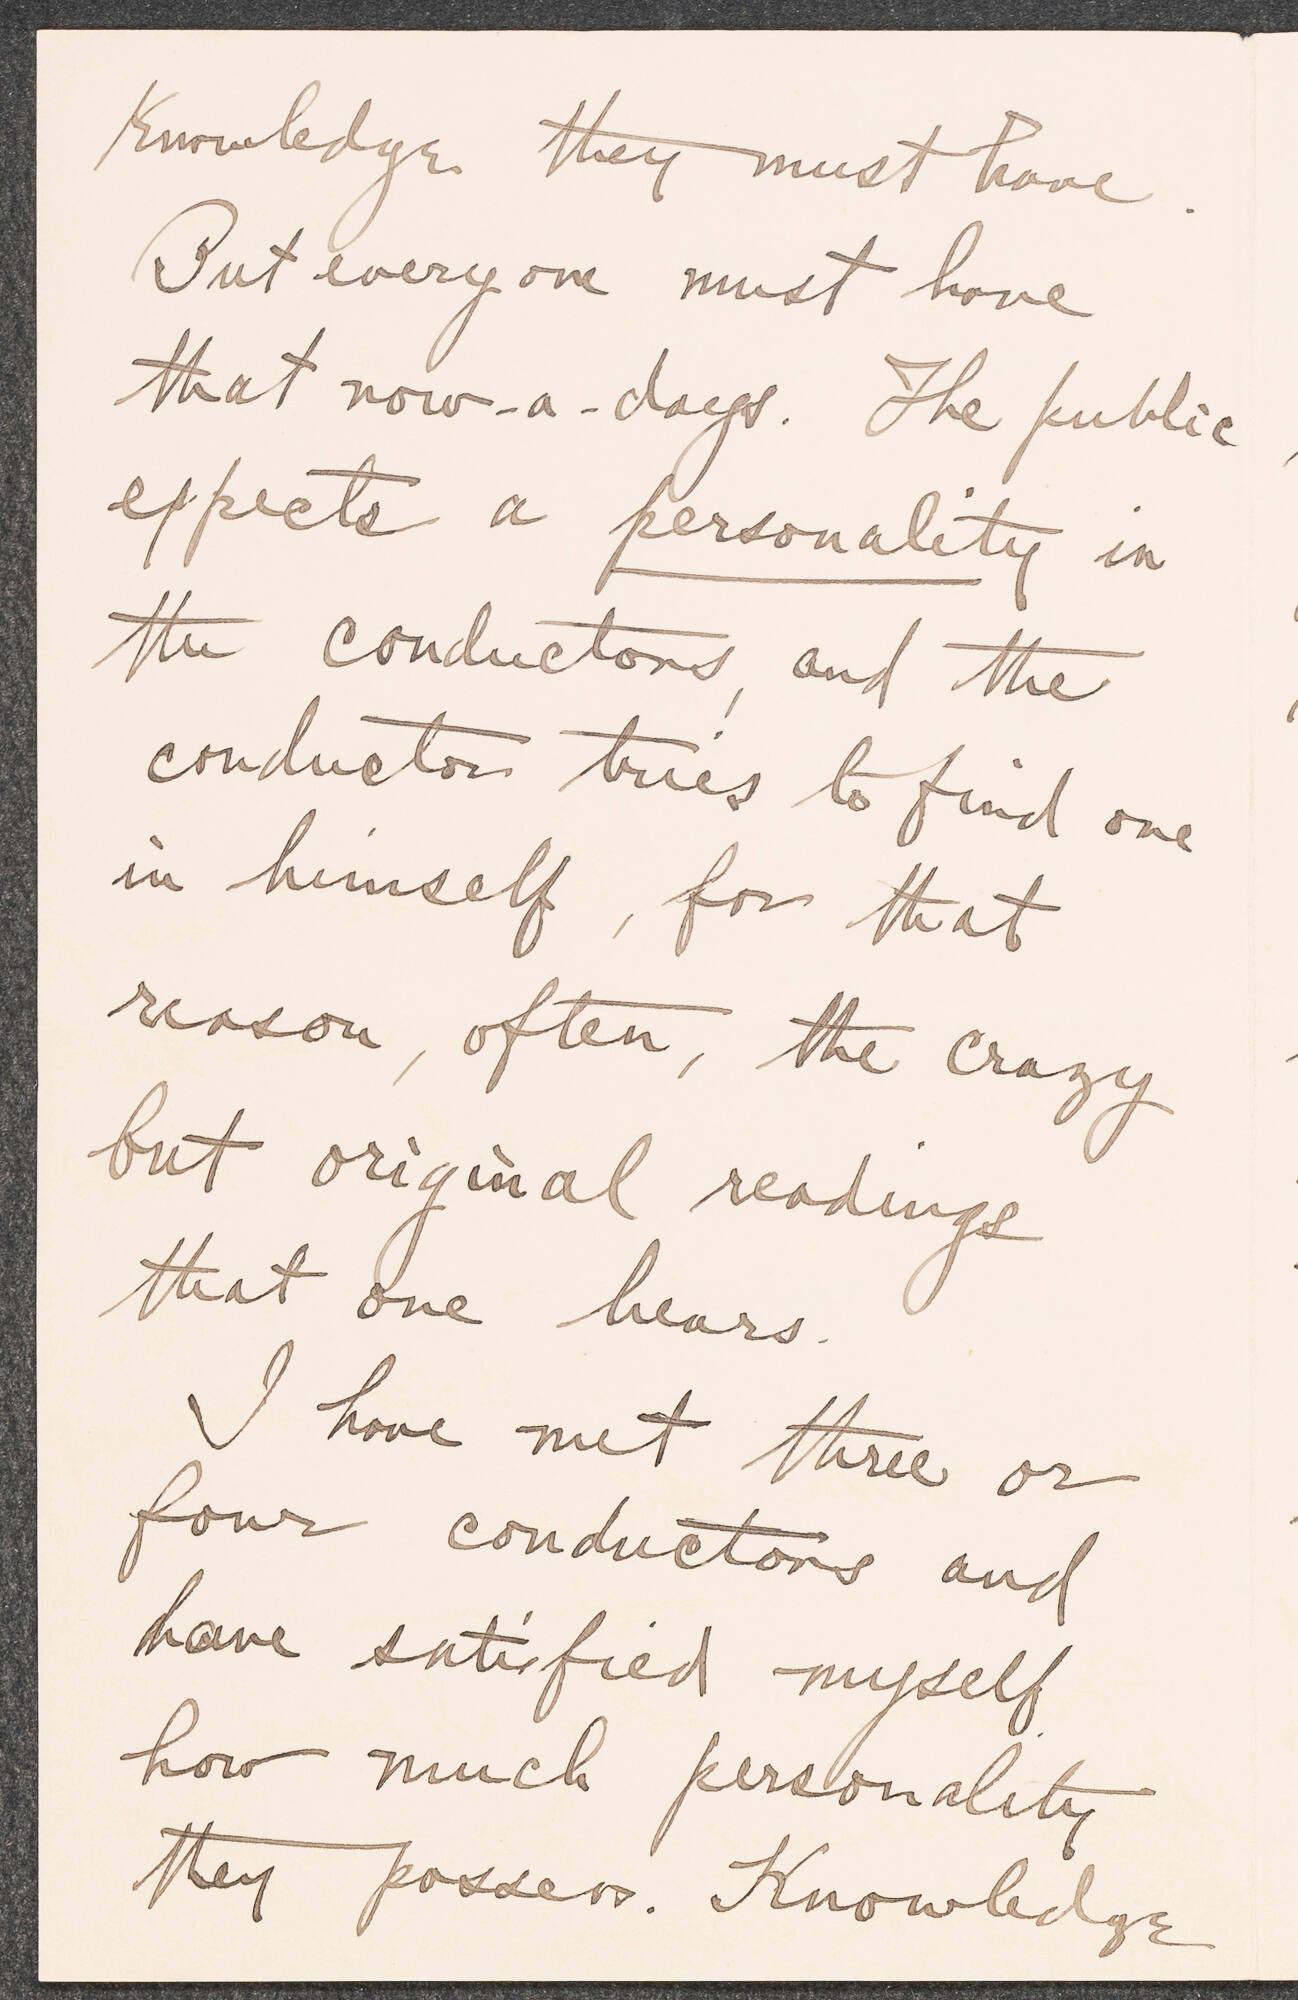 Knowledge they must have.
But everyone must have
that now-a-days. The public
expects a personality in
the conductors, and the
conductor tries to find one
in himself, for that
reason, often, the crazy
but original readings
that one hears.
I have met three or
four conductors and
have satisfied myself
how much personality
they possess. Knowledge